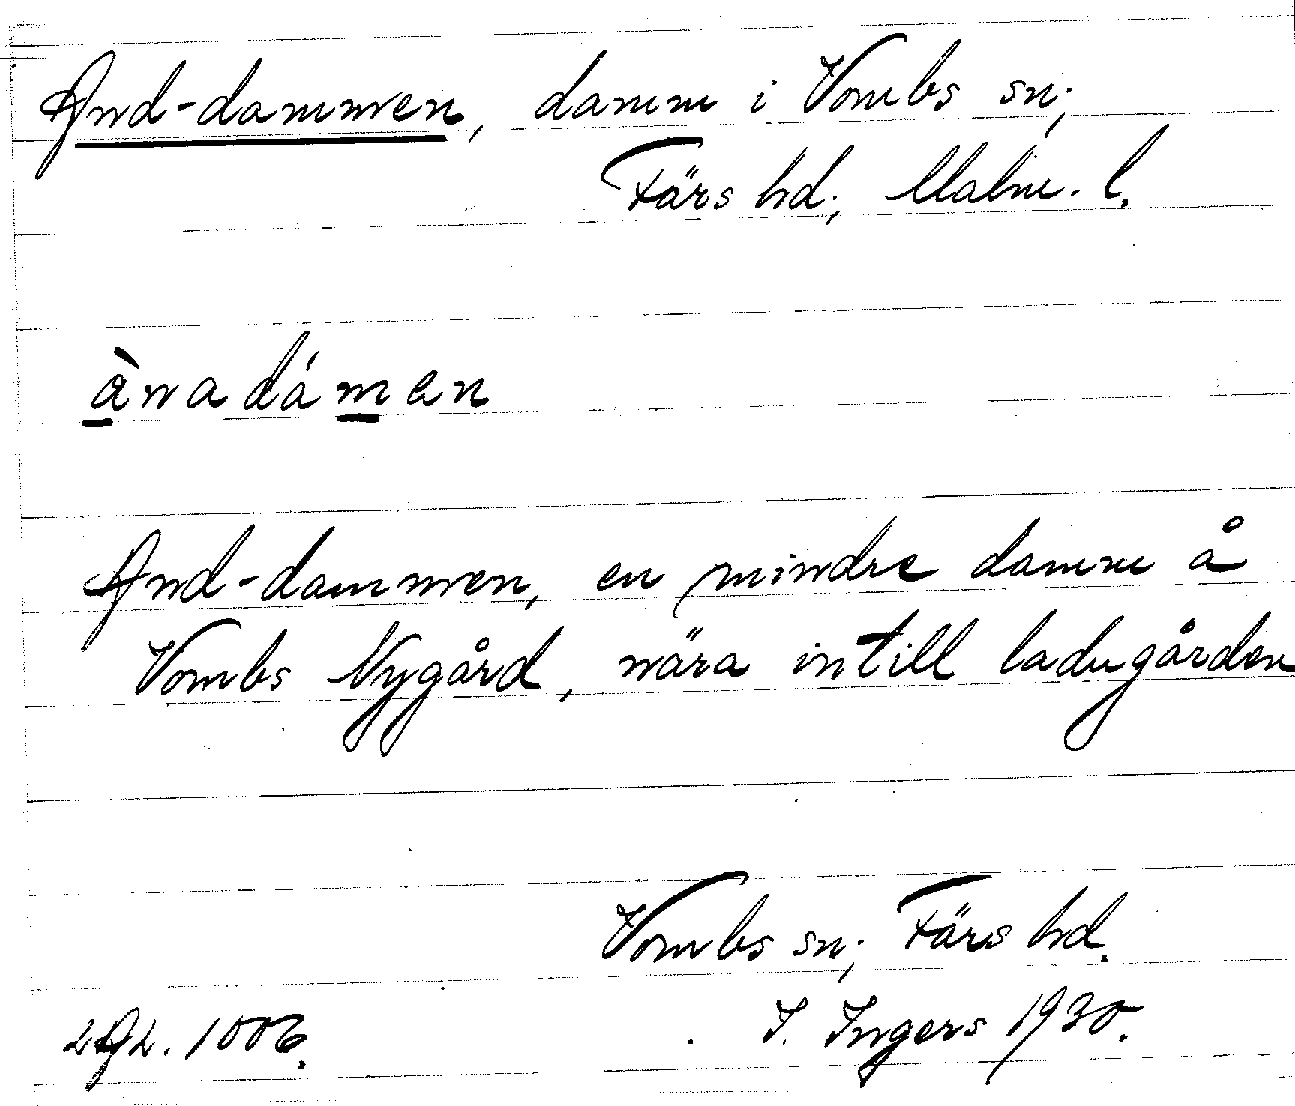 And-dammen, damm i Vombs sn;
Färs hd; Malm. l.
ànadámen
And-dammen, en mindre damm å
Vombs Nygård, nära intill ladugården
Vombs sn; Färs hd.
I. Ingers 1930.